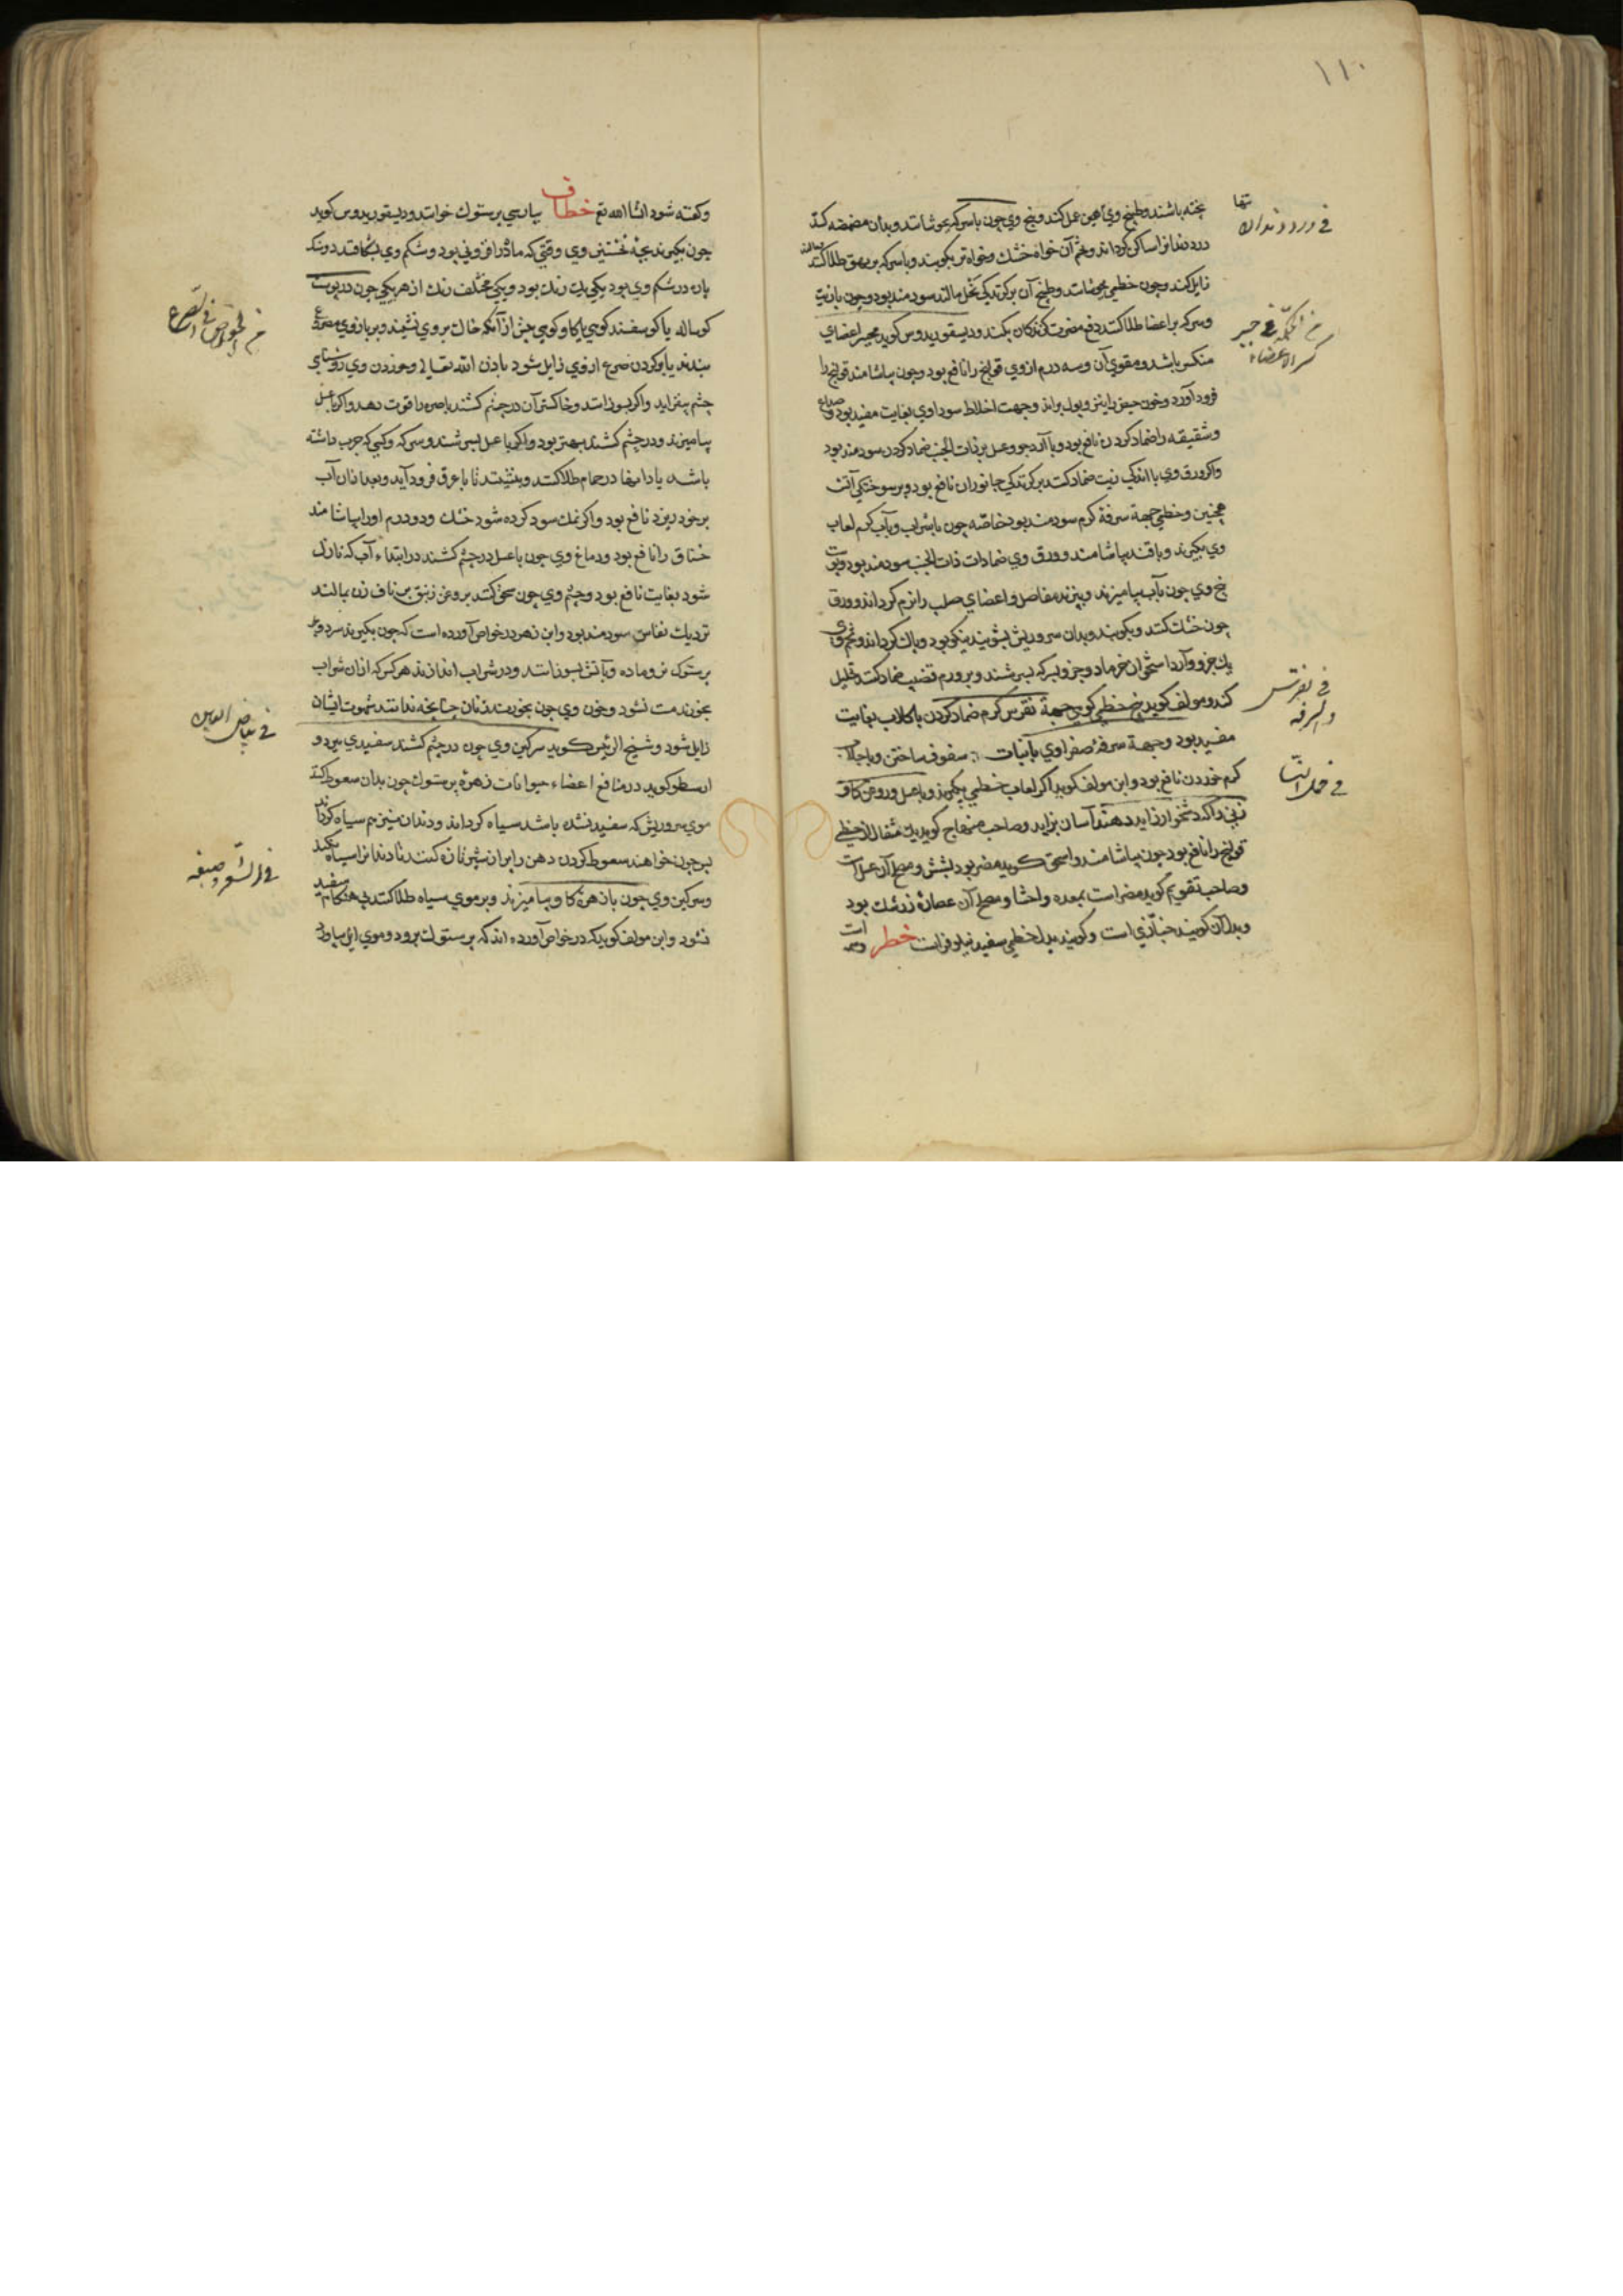 ۱۱۰
پخته باشند و طبیخ وی همین عمل کند و بیخ وی چون با سرکه بجوشانند و بدان مضمضه کند
درد دندانرا ساکن گرداند و تخم آن خواه خشک و خواه تر بکوبند و با سرکه بر بهق طلا کنند
زایل کند و چون خطمی بجوشانند و طبیخ آن بر گزندگی نحل مالند سودمند بود و چون با زیت
و سرکه بر اعضا طلا کنند دفع مضرت گزندگان بکند و دیسقوریدوس گوید
منکس باشد و مقوی آن و سه درم از وی قولنج را نافع بود و چون بیاشامند قولنج را
فرود آورد و خون حیض را نیز و بول براند و جهت اخلاط سوداوی بغایت مفید بود و صداع
و شقیقه را ضماد کردن نافع بود و با آرد جو و عسل بر ذات الجنب ضماد کردن سودمند بود
و اگر ورق وی با اندکی زیت ضماد کنند بر گزندگی جانوران نافع بود و بر سوختگی آتش
همچنین و خطمی جهة سرفۀ گرم سودمند بود خاصّه چون با شراب و بآب گرم لعاب
وی بگیرند و با قند بیاشامند و ورق وی ضمادات ذات الجنب سودمند بود و پوست
بیخ وی چون بآب بیامیزند و بپزند مفاصل و اعضای صلب را نرم گرداند و ورق
چون خشک کنند و بکوبند و بدان سر و ریش بشویند نیکو بود و پاک گرداند و تخم وی
یک جزو و آرد استخوان خرما دو جزو بسرکه بسرشند و بر ورم قضیب ضماد کنند تحلیل
کند و مولف گوید بیخ خطمی کوهی جهة نقرس گرم ضماد کردن با گلاب بغایت
مفید بود و جهة سرفۀ صفراوی با نبات سفوف ساختن و با جلاب
گرم خوردن نافع بود و ابن مولف گوید اگر لعاب خطمی بگیرند و با عسل و روغن گاو
زنی را که دشخوار زاید دهند آسان بزاید و صاحب منهاج گوید یک مثقال از خطمی
قولنج را نافع بود چون بیاشامند و اسحق گوید مضر بود بشش و مصلح آن عسل است
و صاحب تقویم گوید مضر است بمعده و احشا و مصلح آن عصارۀ زرشک بود
و بدل آن گویند خبّازی است و گویند بدل خطمی سفید نیلوفر است خطر وسمه است
فی درد دندان
کسر الاعضاء
فی نقرس
والسرفه
و گفته شود انشا الله تع خطاف بپارسی پرستوک خوانند و دیسقوریدوس گوید
چون بگیرند بچۀ نخستین وی وقتی که ماه در افزونی بود و شکم وی بشکافند دو سنگ
پاره در شکم وی بود یکی یک رنگ بود و یکی مختلف رنگ از هر یکی چون در پوست
گوساله یا گوسفند کوهی یا گاو کوهی پیش از آنکه خاک بر وی نشیند و بر بازوی مصروع
بندند یا بر گردن صرع از وی زایل شود باذن الله تعالی و خوردن وی روشنایی
چشم بیفزاید و اگر بسوزانند و خاکستر آن در چشم کشند باصره را قوت دهد و اگر با عسل
بیامیزند و در چشم کشند بهتر بود و اگر با عسل بسرشند و سرکه و کسی که جرب داشته
باشد یا داء در حمام طلا کنند و بنشیند تا با عرق فرود آید و بعد از آن آب
بر خود ریزد نافع بود و اگر نمک سود کرده شود خشک و دو درم او را بیاشامند
خناق را نافع بود و دماغ وی چون با عسل در چشم کشند در ابتداء آب که نازل
شود بغایت نافع بود و چشم وی چون سحق کنند بروغن زنبق بر ناف زن بمالند
نزدیک نفاس سودمند بود و ابن زهر در خواص آورده است که چون بگیرند سر دو
پرستوک نر و ماده و بآتش بسوزانند و در شراب اندازند هر کس که از آن شراب
بخورند مست نشود و خون وی چون بخورد زنان چنانچه ندانند شهوت ایشان
زایل شود و شیخ الرئیس گوید سرگین وی چون در چشم کشند سفیدی ببرد و
ارسطو گوید در منافع اعضاء حیوانات زهرۀ پرستوک چون بدان سعوط کنند
موی سر و ریش که سفید شده باشد سیاه گرداند و دندان نیز هم سیاه گرداند
پس چون خواهند سعوط کردن دهن را پر از شیر تازه کنند تا دندانرا سیاه نکند
و سرگین وی چون با زهرۀ گاو بیامیزند و بر موی سیاه طلا کنند بی هنگام سفید
نشود و ابن مولف گوید که در خواص آورده اند که پرستوک برود و موی
فی الصرع
فی بیاض العین